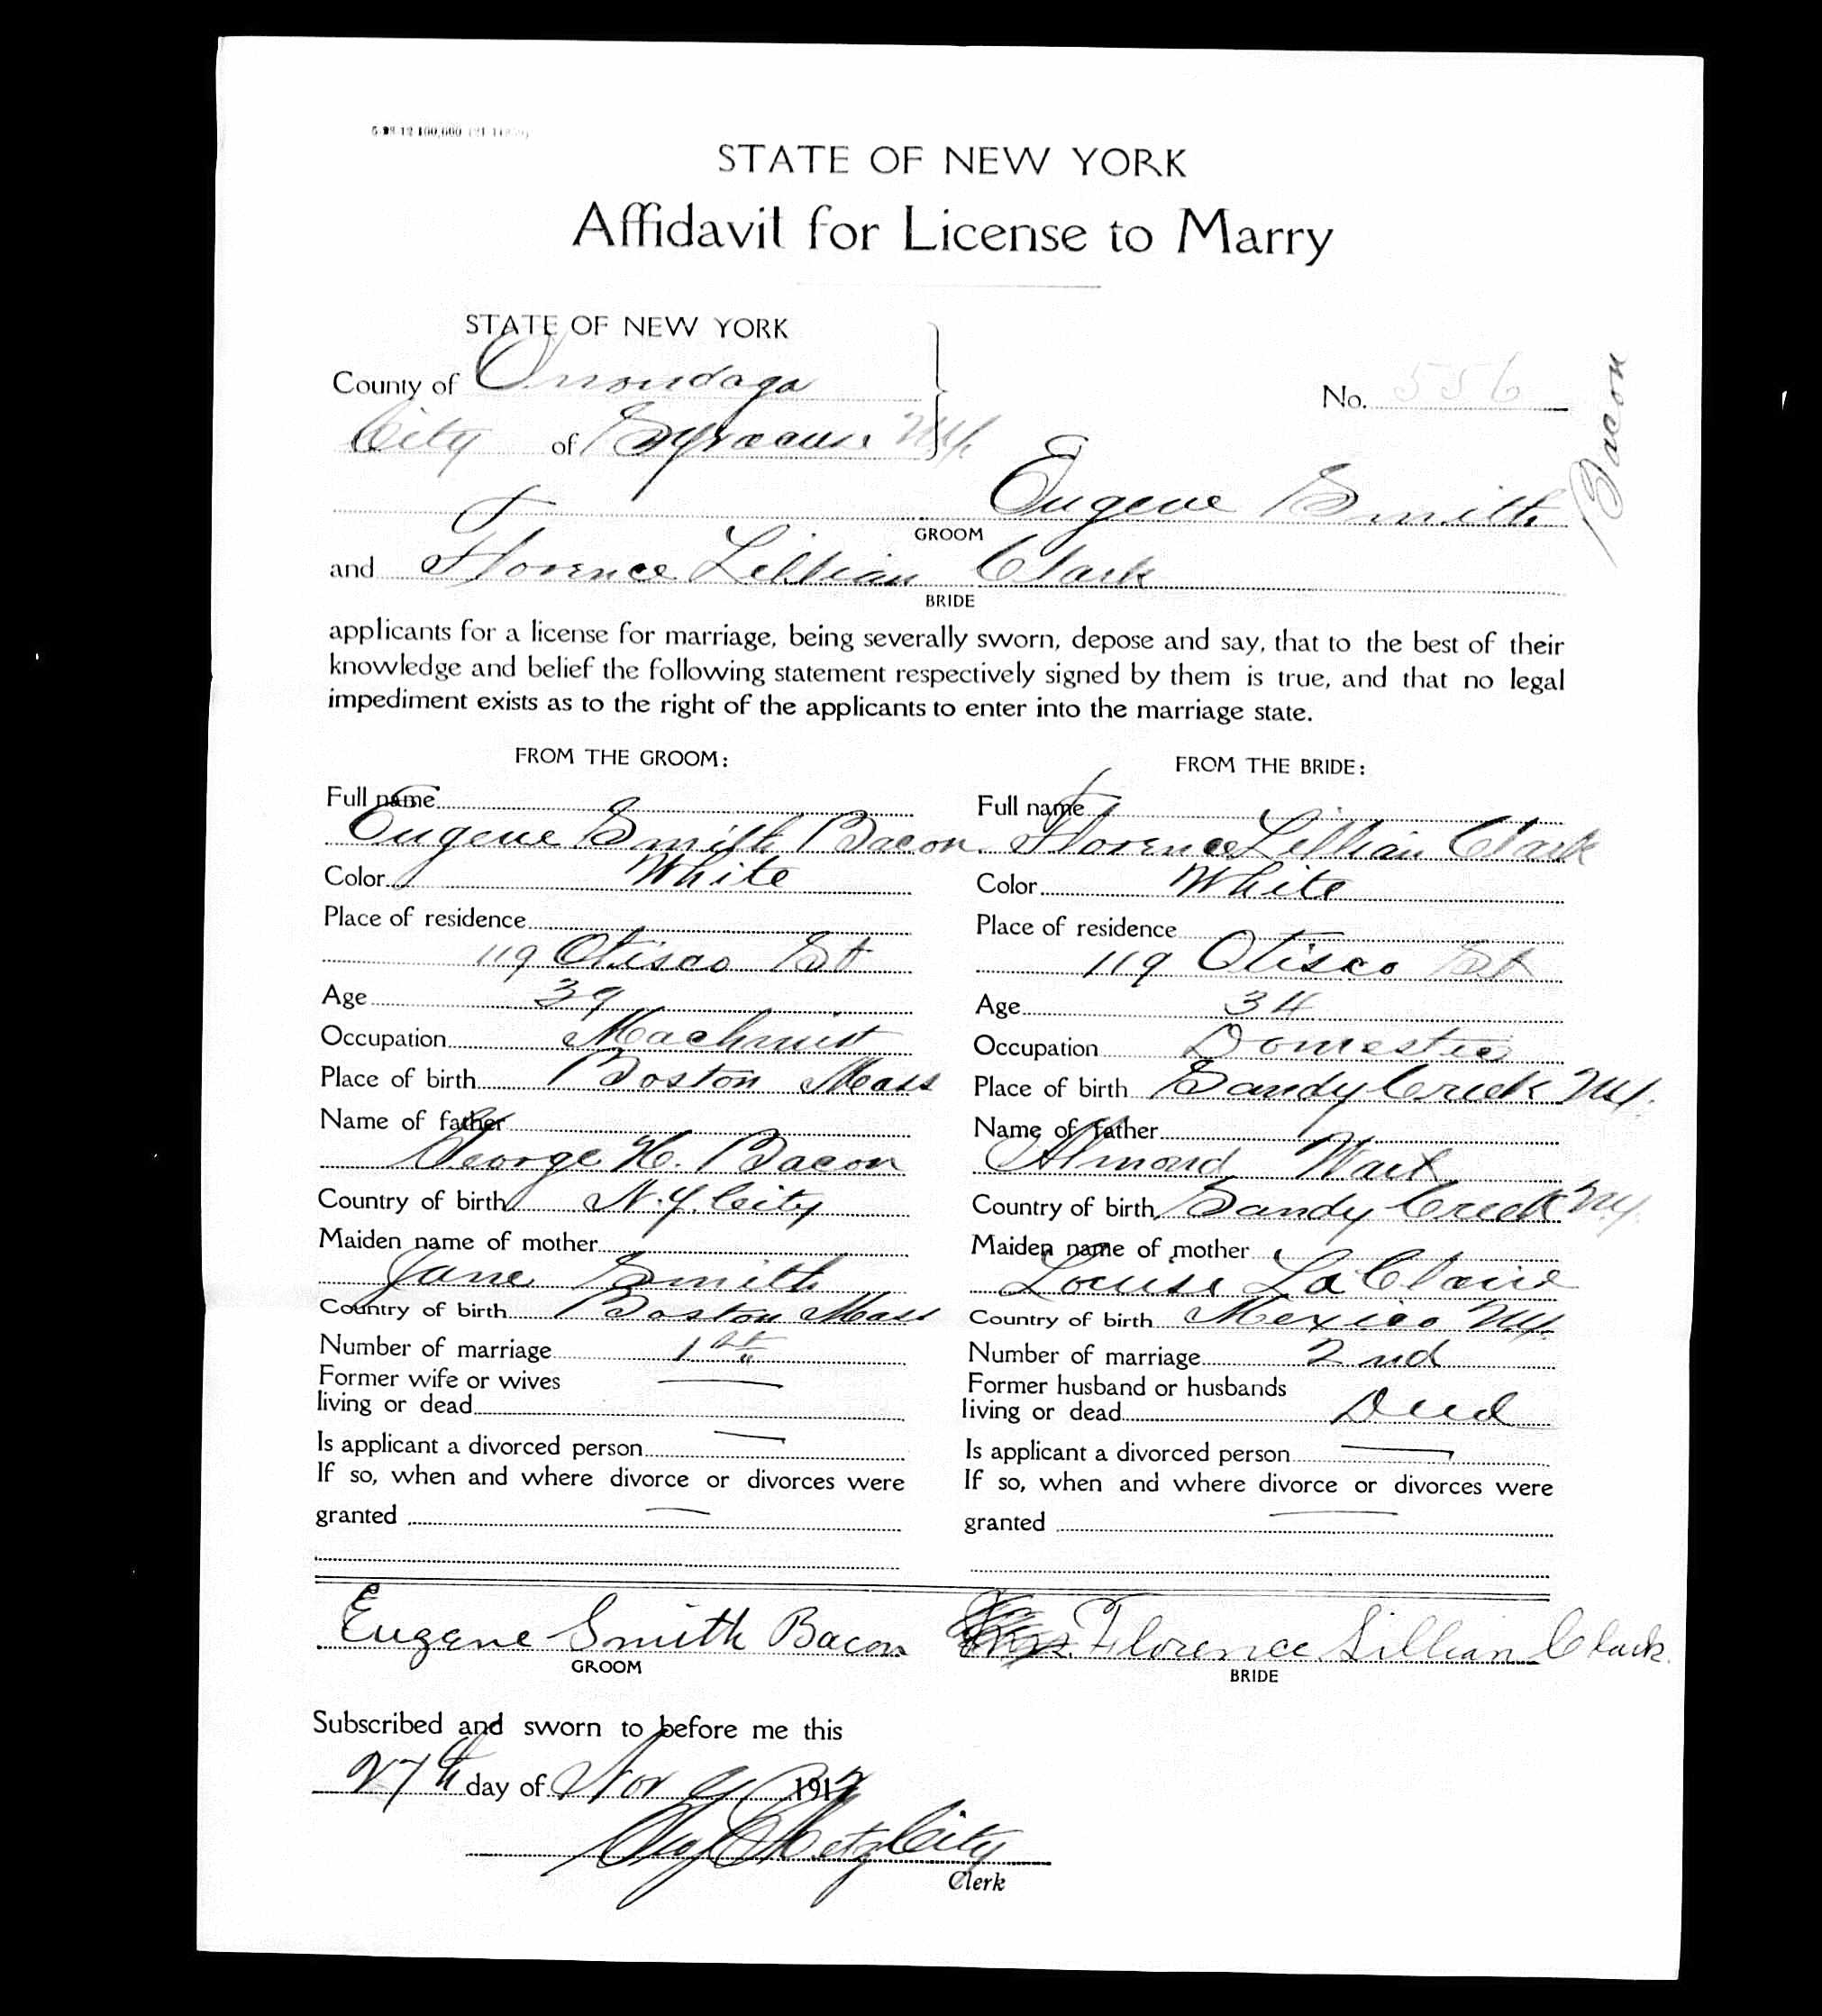 STATE OF NEW YORK
Affidavit for License to Marry
STATE OF NEW YORK
County of Onondaga
No. 556
City of Syracuse N.Y.
Eugene Smith Bacon
GROOM
and Florence Lillian Clark
BRIDE
applicants for a license for marriage, being severally sworn, depose and say, that to the best of their
knowledge and belief the following statement respectively signed by them is true, and that no legal
impediment exists as to the right of the applicants to enter into the marriage state.
FROM THE GROOM:
Full name
Eugene Smith Bacon
Color White
Place of residence
119 Otisco St
Age 39
Occupation Machinist
Place of birth Boston Mass
Name of father
George H. Bacon
Country of birth N.Y. City
Maiden name of mother
Jane Smith
Country of birth Boston Mass
Number of marriage 1st
Former wife or wives
living or dead
Is applicant a divorced person
If so, when and where divorce or divorces were
granted
FROM THE BRIDE:
Full name
Florence Lillian Clark
Color White
Place of residence
119 Otisco St
Age 34
Occupation Domestic
Place of birth Sandy Creek N.Y.
Name of father
Almond
Country of birth Sandy Creek N.Y.
Maiden name of mother
Louise LaClaire
Country of birth Mexico N.Y.
Number of marriage 2nd
Former husband or husbands
living or dead Dead
Is applicant a divorced person
If so, when and where divorce or divorces were
granted
Eugene Smith Bacon
GROOM
Florence Lillian Clark.
BRIDE
Subscribed and sworn to before me this
27th day of Nov 1912
City
Clerk